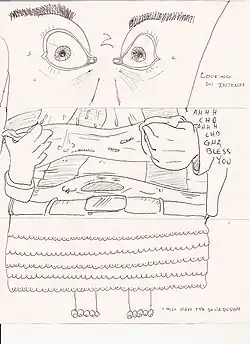 LOOKING
SO INTENSE
AHHH
CHO
AHHH
CHO
GHA
BLESS
YOU
I ALSO HAVE THE